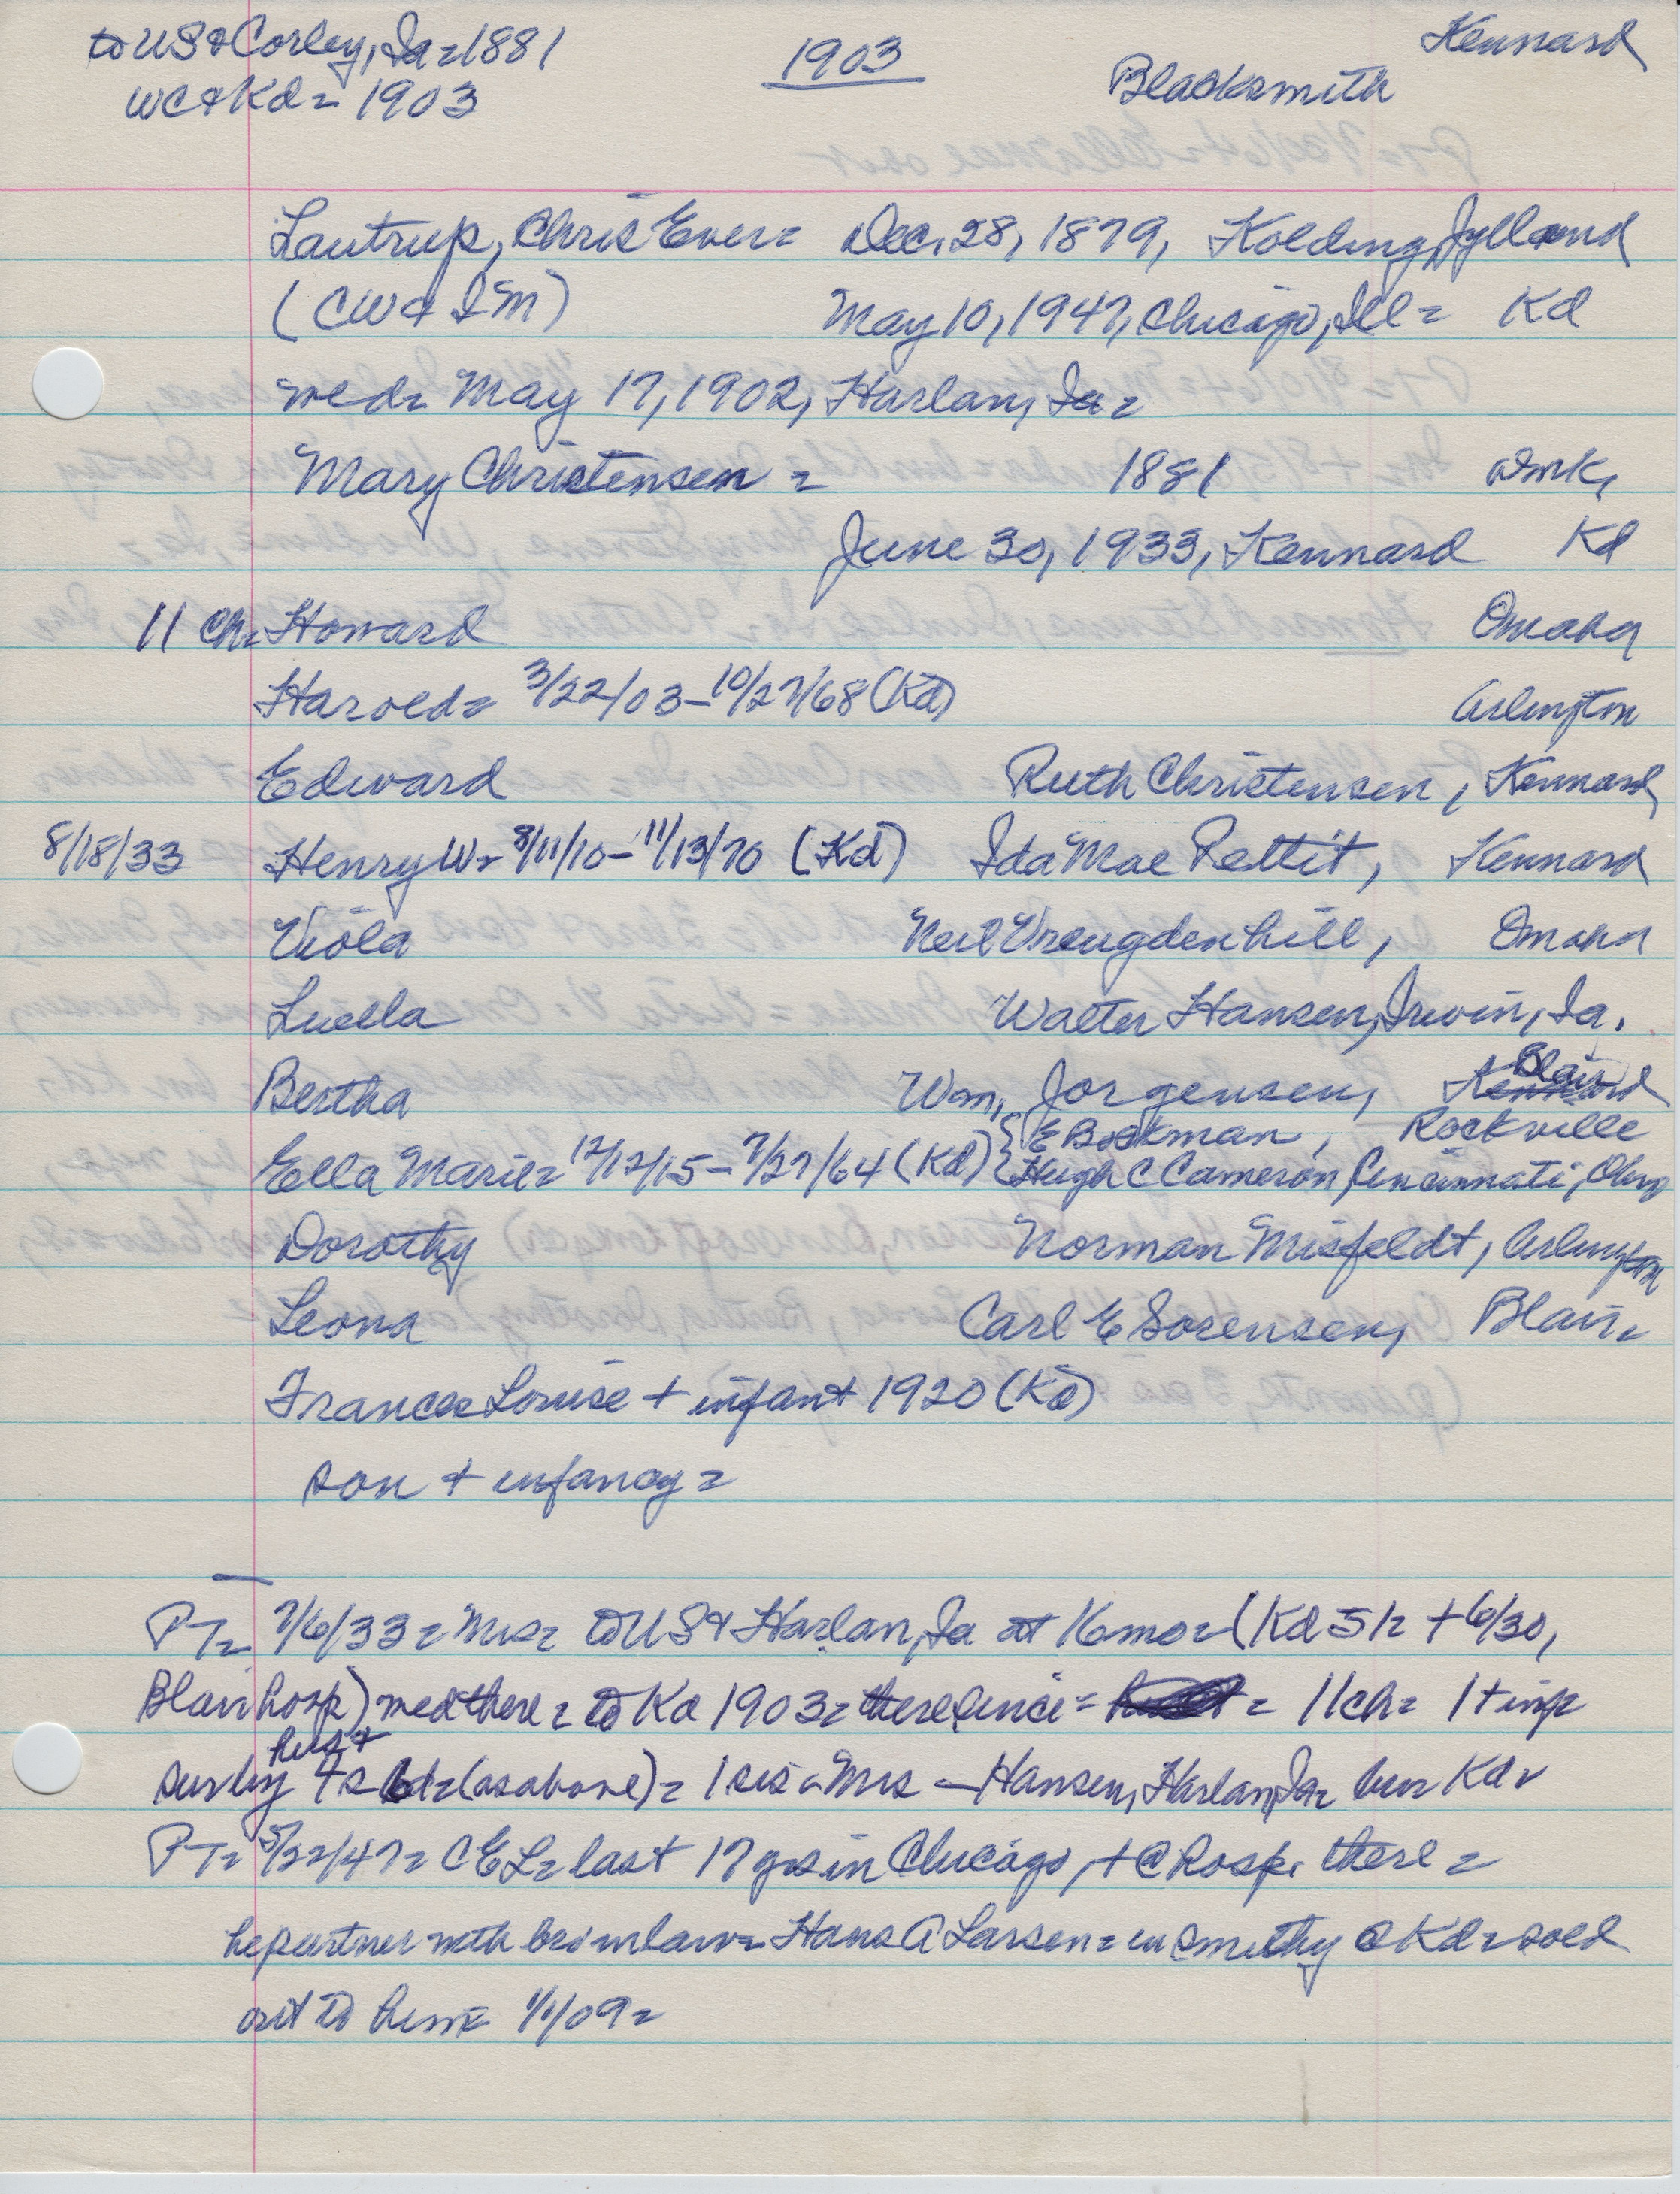 to US & Corley, Ia = 1881
1903
Kennard
WC & Kd = 1903
Blacksmith
Lautrup, Chris Ever = Dec. 28, 1879, Kolding, Jylland
(CW & IM) May 10, 1947, Chicago, Ill = Kd
wed = May 17, 1902, Harlan, Ia =
Mary Christensen = 1881 Dmk,
June 30, 1933, Kennard Kd
11 ch = Howard Omaha
Harold = 3/22/03 - 10/27/68 (Kd) Arlington
Edward Ruth Christensen, Kennard
8/18/33 Henry W = 8/11/10 - 11/13/70 (Kd) Ida Mae Pettit, Kennard
Viola Neil Vreugdenhill, Omaha
Luella Walter Hansen, Irwin, Ia.
Bertha Wm. Jorgensen, Kennard Blair
E Bockman, Rockville
Ella Marie = 12/12/15 - 7/27/64 (Kd) Hugh C Cameron, Cincinnati, Ohio
Dorothy Norman Misfeldt, Arlington
Leona Carl E Sorensen, Blair =
Frances Louise + infant 1920 (Kd)
son + infancy =
PT = 7/6/33 = Mrs = to US & Harlan, Ia at 16 mo = (Kd 5 h + 6/30,
Blair hosp) wed there = to Kd 1903 = there since = = 11 ch = 1 + inf =
hus +
sur by 4 s 6 d = (as above) = 1 sis = Mrs — Hansen, Harlan, Ia = bur Kd =
PT = 5/22/47 = CEL = last 17 yrs in Chicago, + @ hosp. there =
he partner with bro in law = Hans A Larsen = in smithy @ Kd = sold
out to him = 1/1/09 =